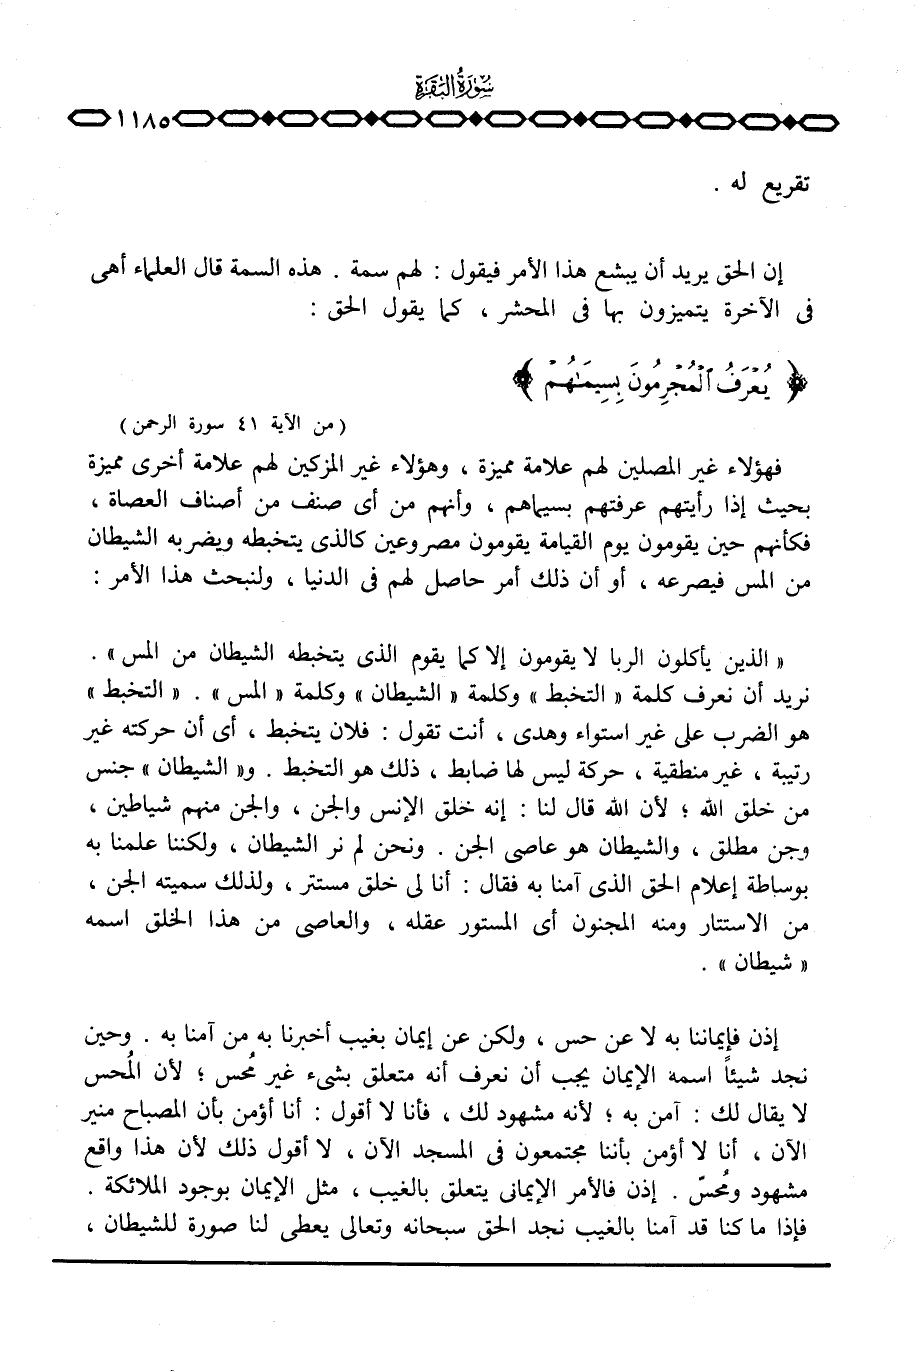 سُورَةُ البَقَرَةِ
١١٨٥
تقريع له .
إن الحق يريد أن يبشع هذا الأمر فيقول : لهم سمة . هذه السمة قال العلماء أهى
فى الآخرة يتميزون بها فى المحشر ، كما يقول الحق :
﴿ يُعْرَفُ الْمُجْرِمُونَ بِسِيمَاهُمْ ﴾
(من الآية ٤١ سورة الرحمن)
فهؤلاء غير المصلين لهم علامة مميزة ، وهؤلاء غير المزكين لهم علامة أخرى مميزة
بحيث إذا رأيتهم عرفتهم بسيماهم ، وأنهم من أى صنف من أصناف العصاة ،
فكأنهم حين يقومون يوم القيامة يقومون مصروعين كالذى يتخبطه ويضربه الشيطان
من المس فيصرعه ، أو أن ذلك أمر حاصل لهم فى الدنيا ، ولنبحث هذا الأمر :
« الذين يأكلون الربا لا يقومون إلا كما يقوم الذى يتخبطه الشيطان من المس » .
نريد أن نعرف كلمة « التخبط » وكلمة « الشيطان » وكلمة « المس » . « التخبط »
هو الضرب على غير استواء وهدى ، أنت تقول : فلان يتخبط ، أى أن حركته غير
رتيبة ، غير منطقية ، حركة ليس لها ضابط ، ذلك هو التخبط . و« الشيطان » جنس
من خلق الله ؛ لأن الله قال لنا : إنه خلق الإنس والجن ، والجن منهم شياطين ،
وجن مطلق ، والشيطان هو عاصى الجن . ونحن لم نر الشيطان ، ولكننا علمنا به
بوساطة إعلام الحق الذى آمنا به فقال : أنا لى خلق مستتر ، ولذلك سميته الجن ،
من الاستتار ومنه المجنون أى المستور عقله ، والعاصى من هذا الخلق اسمه
« شيطان » .
إذن فإيماننا به لا عن حس ، ولكن عن إيمان بغيب أخبرنا به من آمنا به . وحين
نجد شيئاً اسمه الإيمان يجب أن نعرف أنه متعلق بشىء غير مُحس ؛ لأن المُحس
لا يقال لك : آمن به ؛ لأنه مشهود لك ، فأنا لا أقول : أنا أؤمن بأن المصباح منير
الآن ، أنا لا أؤمن بأننا مجتمعون فى المسجد الآن ، لا أقول ذلك لأن هذا واقع
مشهود ومُحسّ . إذن فالأمر الإيمانى يتعلق بالغيب ، مثل الإيمان بوجود الملائكة .
فإذا ما كنا قد آمنا بالغيب نجد الحق سبحانه وتعالى يعطى لنا صورة للشيطان ،